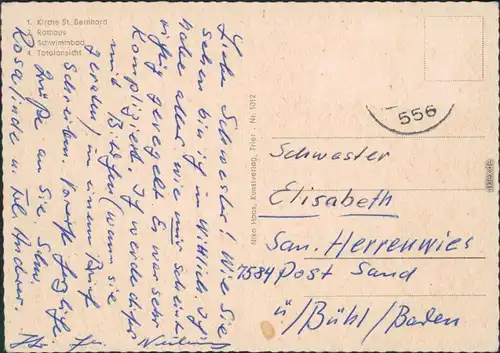 1. Kirche St. Bernhard
2. Rathaus
3. Schwimmbad
4. Totalansicht
Liebe Schwester! Wie Sie
sehen bin ich in Wittlich. Ich
habe alles wie mir scheint
richtig geregelt. Es war sehr
kompliziert. Ich werde
mit Bildern (wenn sie
geraten) in einem Brief
schreiben. Vorerst herzliche
Grüße an Sie,
Rosalinde u.
Niko Haas, Kunstverlag, Trier, Nr. 1012
556
Schwester
Elisabeth
San. Herrenwies
7584 Post Sand
ü/Bühl/Baden